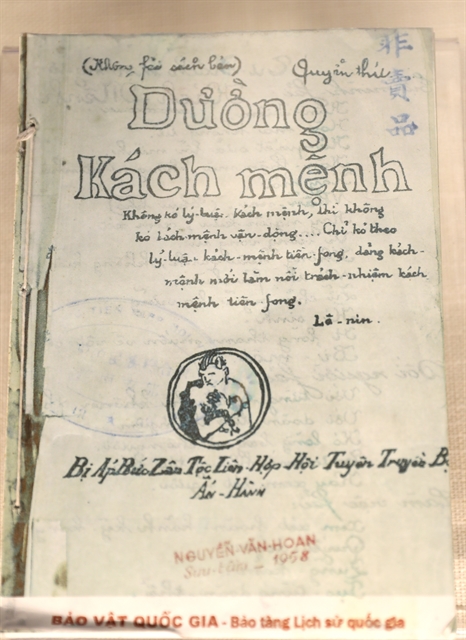 (Không fải sách bán) Quyển thứ
非賣品
Dường
Kách mệnh
Không kó lý-luận kách mệnh, thì không
kó kách mệnh vận-động.... Chỉ kó theo
lý-luận kách-mệnh tiền-fong, đảng kách-
mệnh mới làm nổi trách-nhiệm kách
mệnh tiền-fong.
Lê-nin.
Bị Áp Bức Zân Tộc Liên-Hợp Hội Tuyên Truyền Bộ
Ấn-Hành
NGUYỄN-VĂN-HOAN
Sưu-tầm - 1958
BẢO VẬT QUỐC GIA - Bảo tàng Lịch sử quốc gia